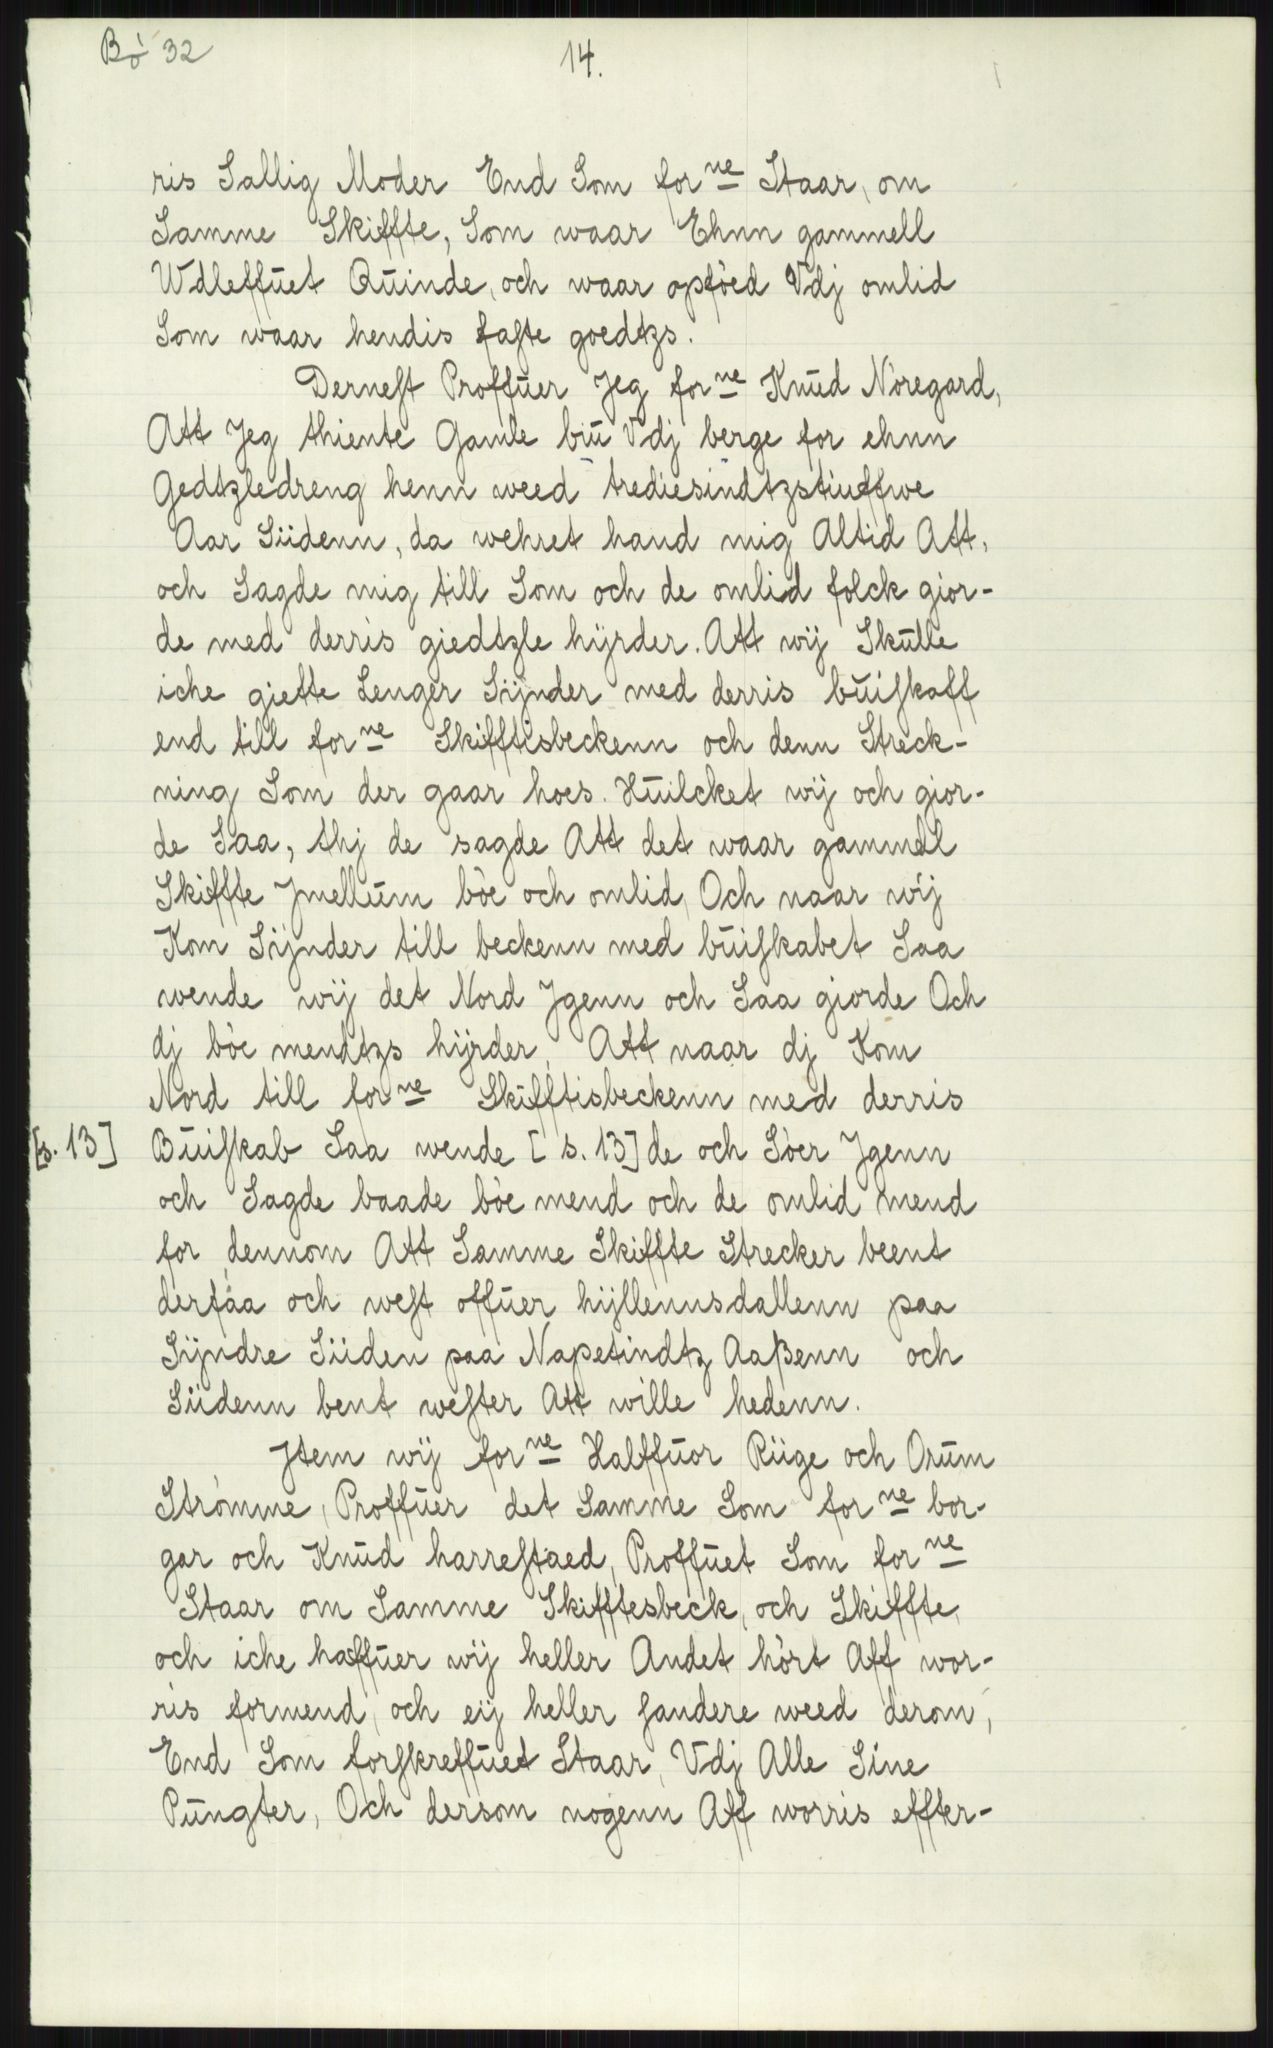 Bö 32
14.
ris Sallig Moder End Som for<sup>ne</sup> Staar, om
Samme Skiffte, Som waar Ehnn gammell
Wdleffuet Quinde, och waar opföed Vdj omlid
Som waar hendis faste goedtzs.
Dernest Proffuer Jeg for<sup>ne</sup> Knud Nöregard,
Att Jeg thiente Gamle bru Vdj berge for ehnn
Gedtzledreng henn weed trediesindtzstiuffwe
Aar Siidenn, da wehret hand mig Altid Att,
och Sagde mig till Som och de omlid folck gior-
de med derris giedtzle hÿrder. Att wij Skulle
iche giette Lenger Sÿnder med derris buiskaff
end till for<sup>ne</sup> Skifftisbeckenn och denn Streck-
ning Som der gaar hoes. Huilcket wij och gior-
de Saa, thj de sagde Att det waar gammell
Skiffte Jmellum böe och omlid, Och naar wij
Kom Sÿnder till beckenn med buiskabet Saa
wende wij det Nord Jgenn och Saa giorde Och
dj böe mendtzs hÿrder, Att naar dj Kom
Nord till for<sup>ne</sup> Skifftisbeckenn med derris
[s. 13] Buiskab Saa wende [s. 13] de och Söer Jgenn
och Sagde baade böe mend och de omlid mend
for dennom Att Samme Skiffte Strecker beent
derfaa och west offuer hÿllennsdallenn paa
Sÿndre Siiden paa Napetindtz Aaßenn och
Siidenn bent wester Att wille hedenn.
Jtem wij for<sup>ne</sup> Halffuor Riige och Orum
Strömme, Proffuer det Samme Som for<sup>ne</sup> bor-
gar och Knud harrestaed, Proffuet Som for<sup>ne</sup>
Staar om Samme Skifftesbeck, och Skiffte,
och iche haffuer wij heller Andet hört Aff wor-
ris formend, och eij heller sandere weed derom,
End Som forskreffuet Staar, Vdj Alle Sine
Pungter, Och dersom nogenn Aff worris effter-